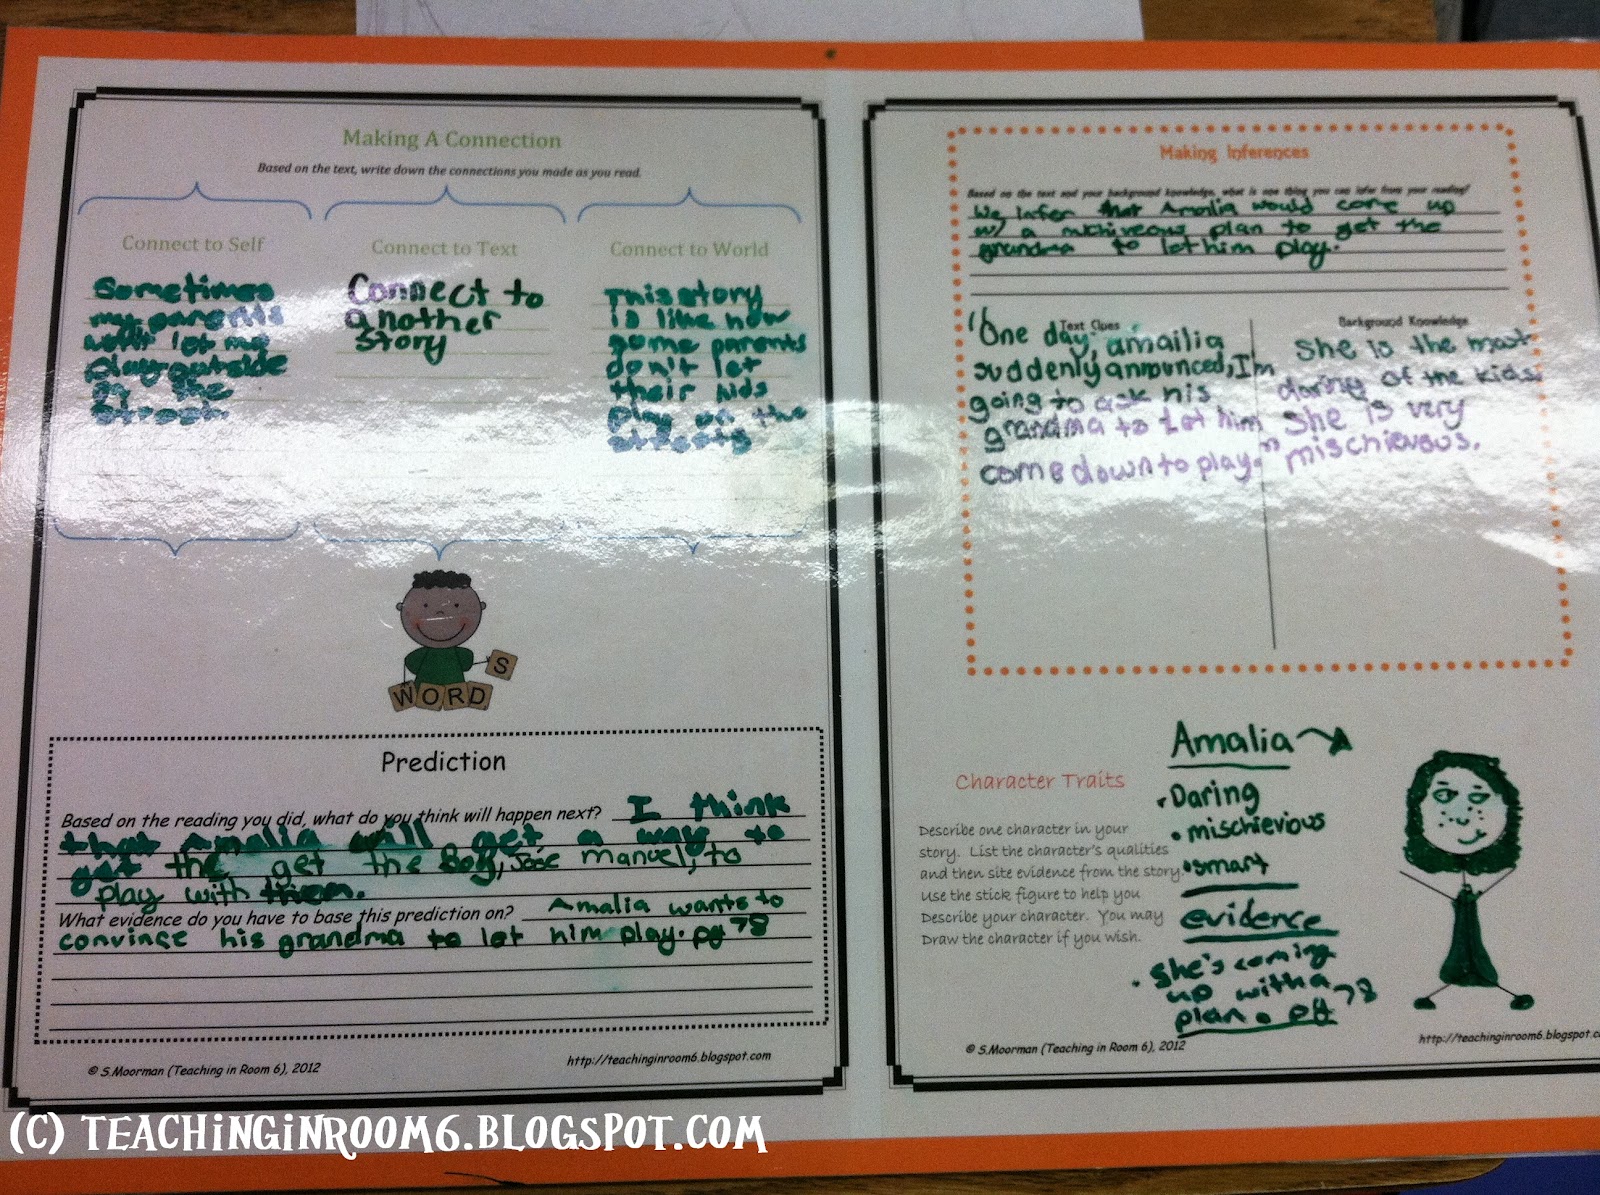 Making A Connection
Based on the text, write down the connections you made as you read.
Connect to Self
Sometimes
my parents
won't let me
play outside
in the
street.
Connect to Text
Connect to
another
story
Connect to World
This story
is like how
some parents
don't let
their kids
play on the
streets
WORDS
Prediction
Based on the reading you did, what do you think will happen next? I think
that Amalia will get a way to
get the get the Boy, Jose manuel, to
play with them.
What evidence do you have to base this prediction on? Amalia wants to
convince his grandma to let him play. pg 78
© S.Moorman (Teaching in Room 6), 2012
http://teachinginroom6.blogspot.com
Making Inferences
Based on the text and your background knowledge, what is one thing you can infer from your reading?
We infer that Amalia would come up
w/ a michiveous plan to get the
grandma to let him play.
Text Clues
"One day, amailia
suddenly announced, I'm
going to ask his
grandma to let him
come down to play."
Background Knowledge
She is the most
daring of the kids.
She is very
mischievous.
Character Traits
Describe one character in your
story. List the character's qualities
and then site evidence from the story.
Use the stick figure to help you
Describe your character. You may
Draw the character if you wish.
Amalia
• Daring
• mischievious
• smart
evidence
• she's coming
up with a
plan. pg 78
© S.Moorman (Teaching in Room 6), 2012
http://teachinginroom6.blogspot.co
(C) TEACHINGINROOM6.BLOGSPOT.COM